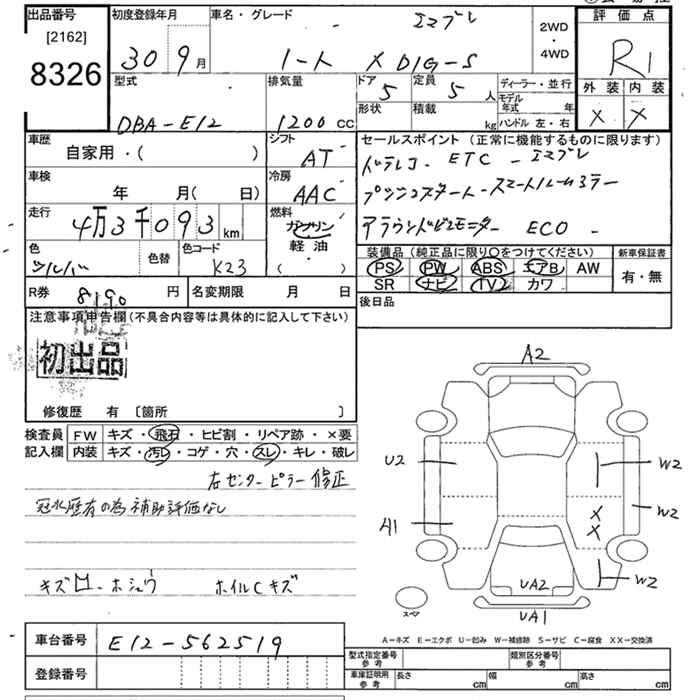 出品番号
[2162]
8326
初度登録年月
30 9月
車名・グレード
エマブレ
ノート X DIG-S
2WD
・
4WD
評価点
R1
外装 内装
X X
型式
DBA-E12
排気量
1200 CC
ドア
5
定員
5 人
形状
積載
kg
ディーラー・並行
モデル年式 年
ハンドル 左・右
車歴
自家用・( )
シフト
AT
車検
年 月( 日)
冷房
AAC
走行
4万3千093km
燃料
ガソリン
軽油
・
( )
色
シルバ
色替
色コード
K23
セールスポイント (正常に機能するものに限ります)
ドラレコ - ETC - エマブレ
プッシュスタート - スマートルームミラー
アラウンドビューモニター ECO -
装備品 (純正品に限り○をつけてください)
PS PW ABS エアB AW
SR ナビ TV カワ
新車保証書
有・無
R券
8190 円
名変期限 月 日
後日品
注意事項申告欄 (不具合内容等は具体的に記入して下さい)
初出品
修復歴 有 〔箇所 〕
検査員記入欄
FW キズ・飛石・ヒビ割・リペア跡・×要
内装 キズ・汚レ・コゲ・穴・スレ・キレ・破レ
右センターピラー修正
冠水歴有の為補助評価なし
キズ ホシュウ ホイルCキズ
A2
U2
A1
W2
W2
X
X
W2
UA2
UA1
スペア
A-キズ E-エクボ U-凹み W-補修跡 S-サビ C-腐食 XX-交換済
車台番号
E12-562519
登録番号
型式指定番号
参考
類別区分番号
参考
車庫証明用
参考
長さ cm
幅 cm
高さ cm